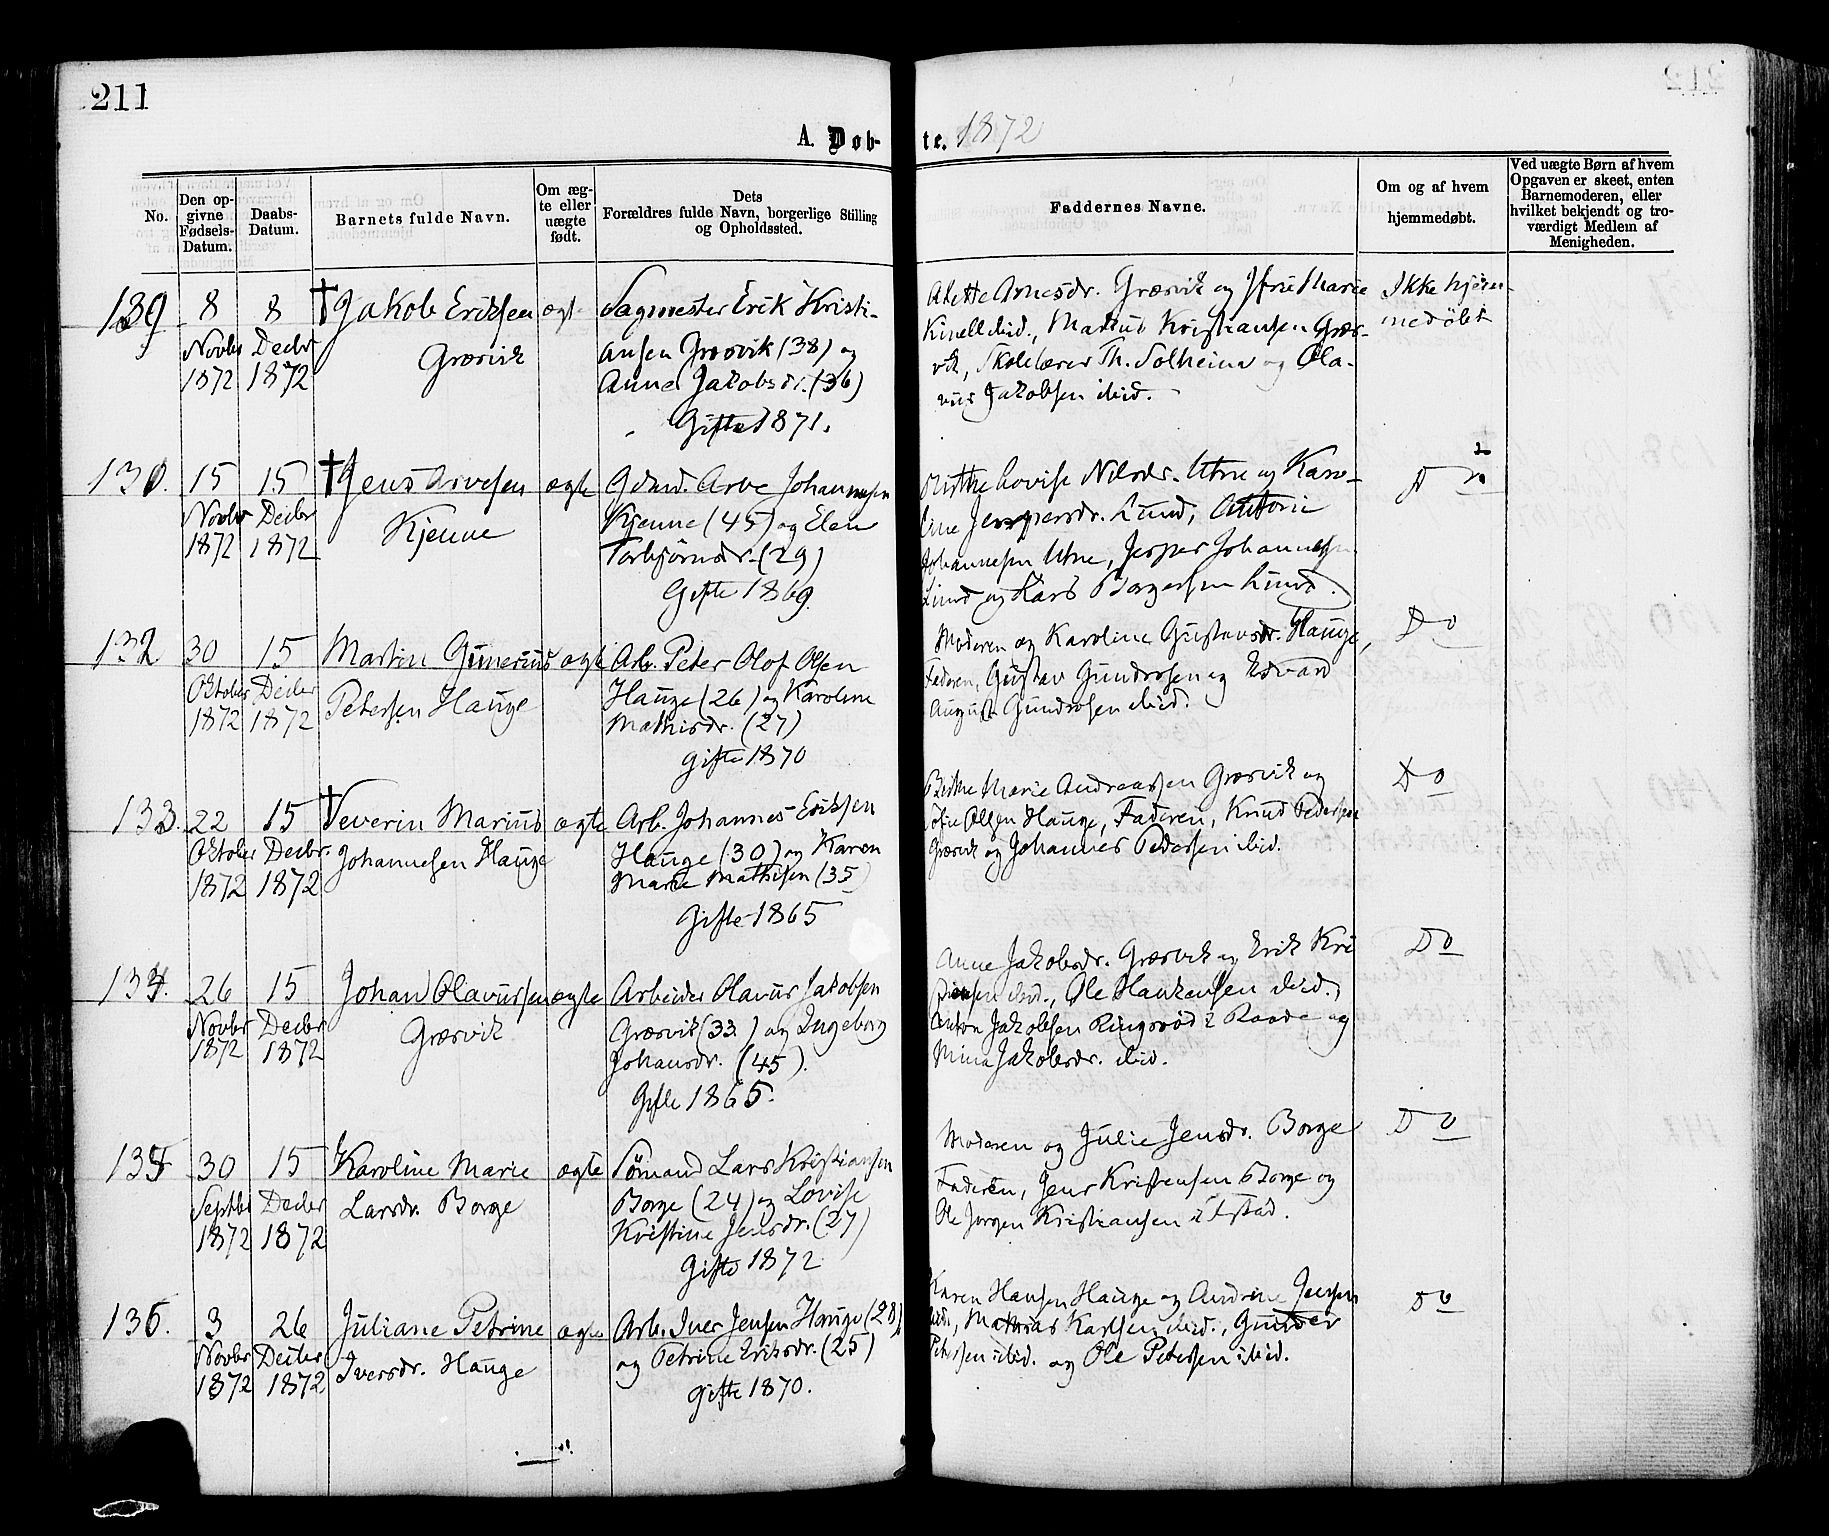 211
A. Døb-
te. 1872
No.
Den op-
givne
Fødsels-
Datum.
Daabs-
Datum.
Barnets fulde Navn.
Om æg-
te eller
uægte
født.
Dets
Forældres fulde Navn, borgerlige Stilling
og Opholdssted.
Faddernes Navne.
Om og af hvem
hjemmedøbt.
Ved uægte Børn af hvem
Opgaven er skeet, enten
Barnemoderen, eller
hvilket bekjendt og tro-
værdigt Medlem af
Menigheden.
8
Novbr
1872
8
Decbr
1872
†Jakob Eriksen
Græsvik
ægt.
Sagmester Erik Kristi-
ansen Græsvik (38) og
Anne Jakobsdr. (36)
Gifte 1871.
Anesdr. Græsvik og Marie
ibid., Markus Kristiansen Græs-
vik, Skolelærer Th. Solheim og Ola-
vus Jakobsen ibid.
Ikke hjem-
medøbt
130.
15
Novbr
1872
15
Decbr
1872
†Jens Arvesen
Kjenne
ægte
Gdmd. Arve Johannesen
Kjenne (45) og Elen
Torbjørnsdr. (29)
Gifte 1869.
Lovise Nilsdr. Utne og Karo-
line Jespersdr. Lund,
Johannesen Utne, Jesper Johannesen
Lund og Lars Borgersen Lund.
D o
132
30
Oktober
1872
15
Decbr
1872
Martin Gunerius
Petersen Hauge
ægte
Arb. Peter Olof Olsen
Hauge (26) og Karoline
Mathisdr. (27)
gifte 1870
Moderen og Karoline Gustavsdr. Hauge,
Faderen, Gustav Gundrosen og Edvard
August Gundrosen ibid.
D o
133.
22
Oktober
1872
15
Decbr.
1872
†Severin Marius
Johannesen Hauge
ægte
Arb. Johannes Eriksen
Hauge (30) og Karen
Marie Mathisen (35)
Gifte 1865
Marie Andreassen Græsvik og
Olsen Hauge, Faderen, Knud Pedersen
Græsvik og Johannes Pedersen ibid.
D o
134.
26
Novbr
1872
15
Decbr
1872
Johan Olavussen
Græsvik
ægte
Arbeider Olavus Jakobsen
Græsvik (33) og Ingeborg
Johansdr. (45).
Gifte 1865.
Anne Jakobsdr. Græsvik og Erik Kri
stiansen ibid., Ole Haukansen ibid.,
Anton Jakobsen Ringsrød i Raade og
Mina Jakobsdr. ibid.
D o
135
30
Septbr
1872
15
Decbr
1872
Karoline Marie
Larsdr. Borge
ægte
Sømand Lars Kristiansen
Borge (24) og Lovise
Kristine Jensdr. (27)
Gifte 1872
Moderen og Julie Jensdr. Borge
Faderen, Jens Kristensen Borge og
Ole Jørgen Kristiansen
D o
136.
3
Novbr
1872
26
Decbr
1872
Juliane Petrine
Iversdr. Hauge
ægte
Arb. Iver Jensen Hauge (28)
og Petrine Eriksdr. (25)
gifte 1870.
Karen Hansen Hauge og Andrine Jensen
ibid., Mathias Karlsen ibid., Gunder
Petersen ibid. og Ole Petersen ibid.
D o